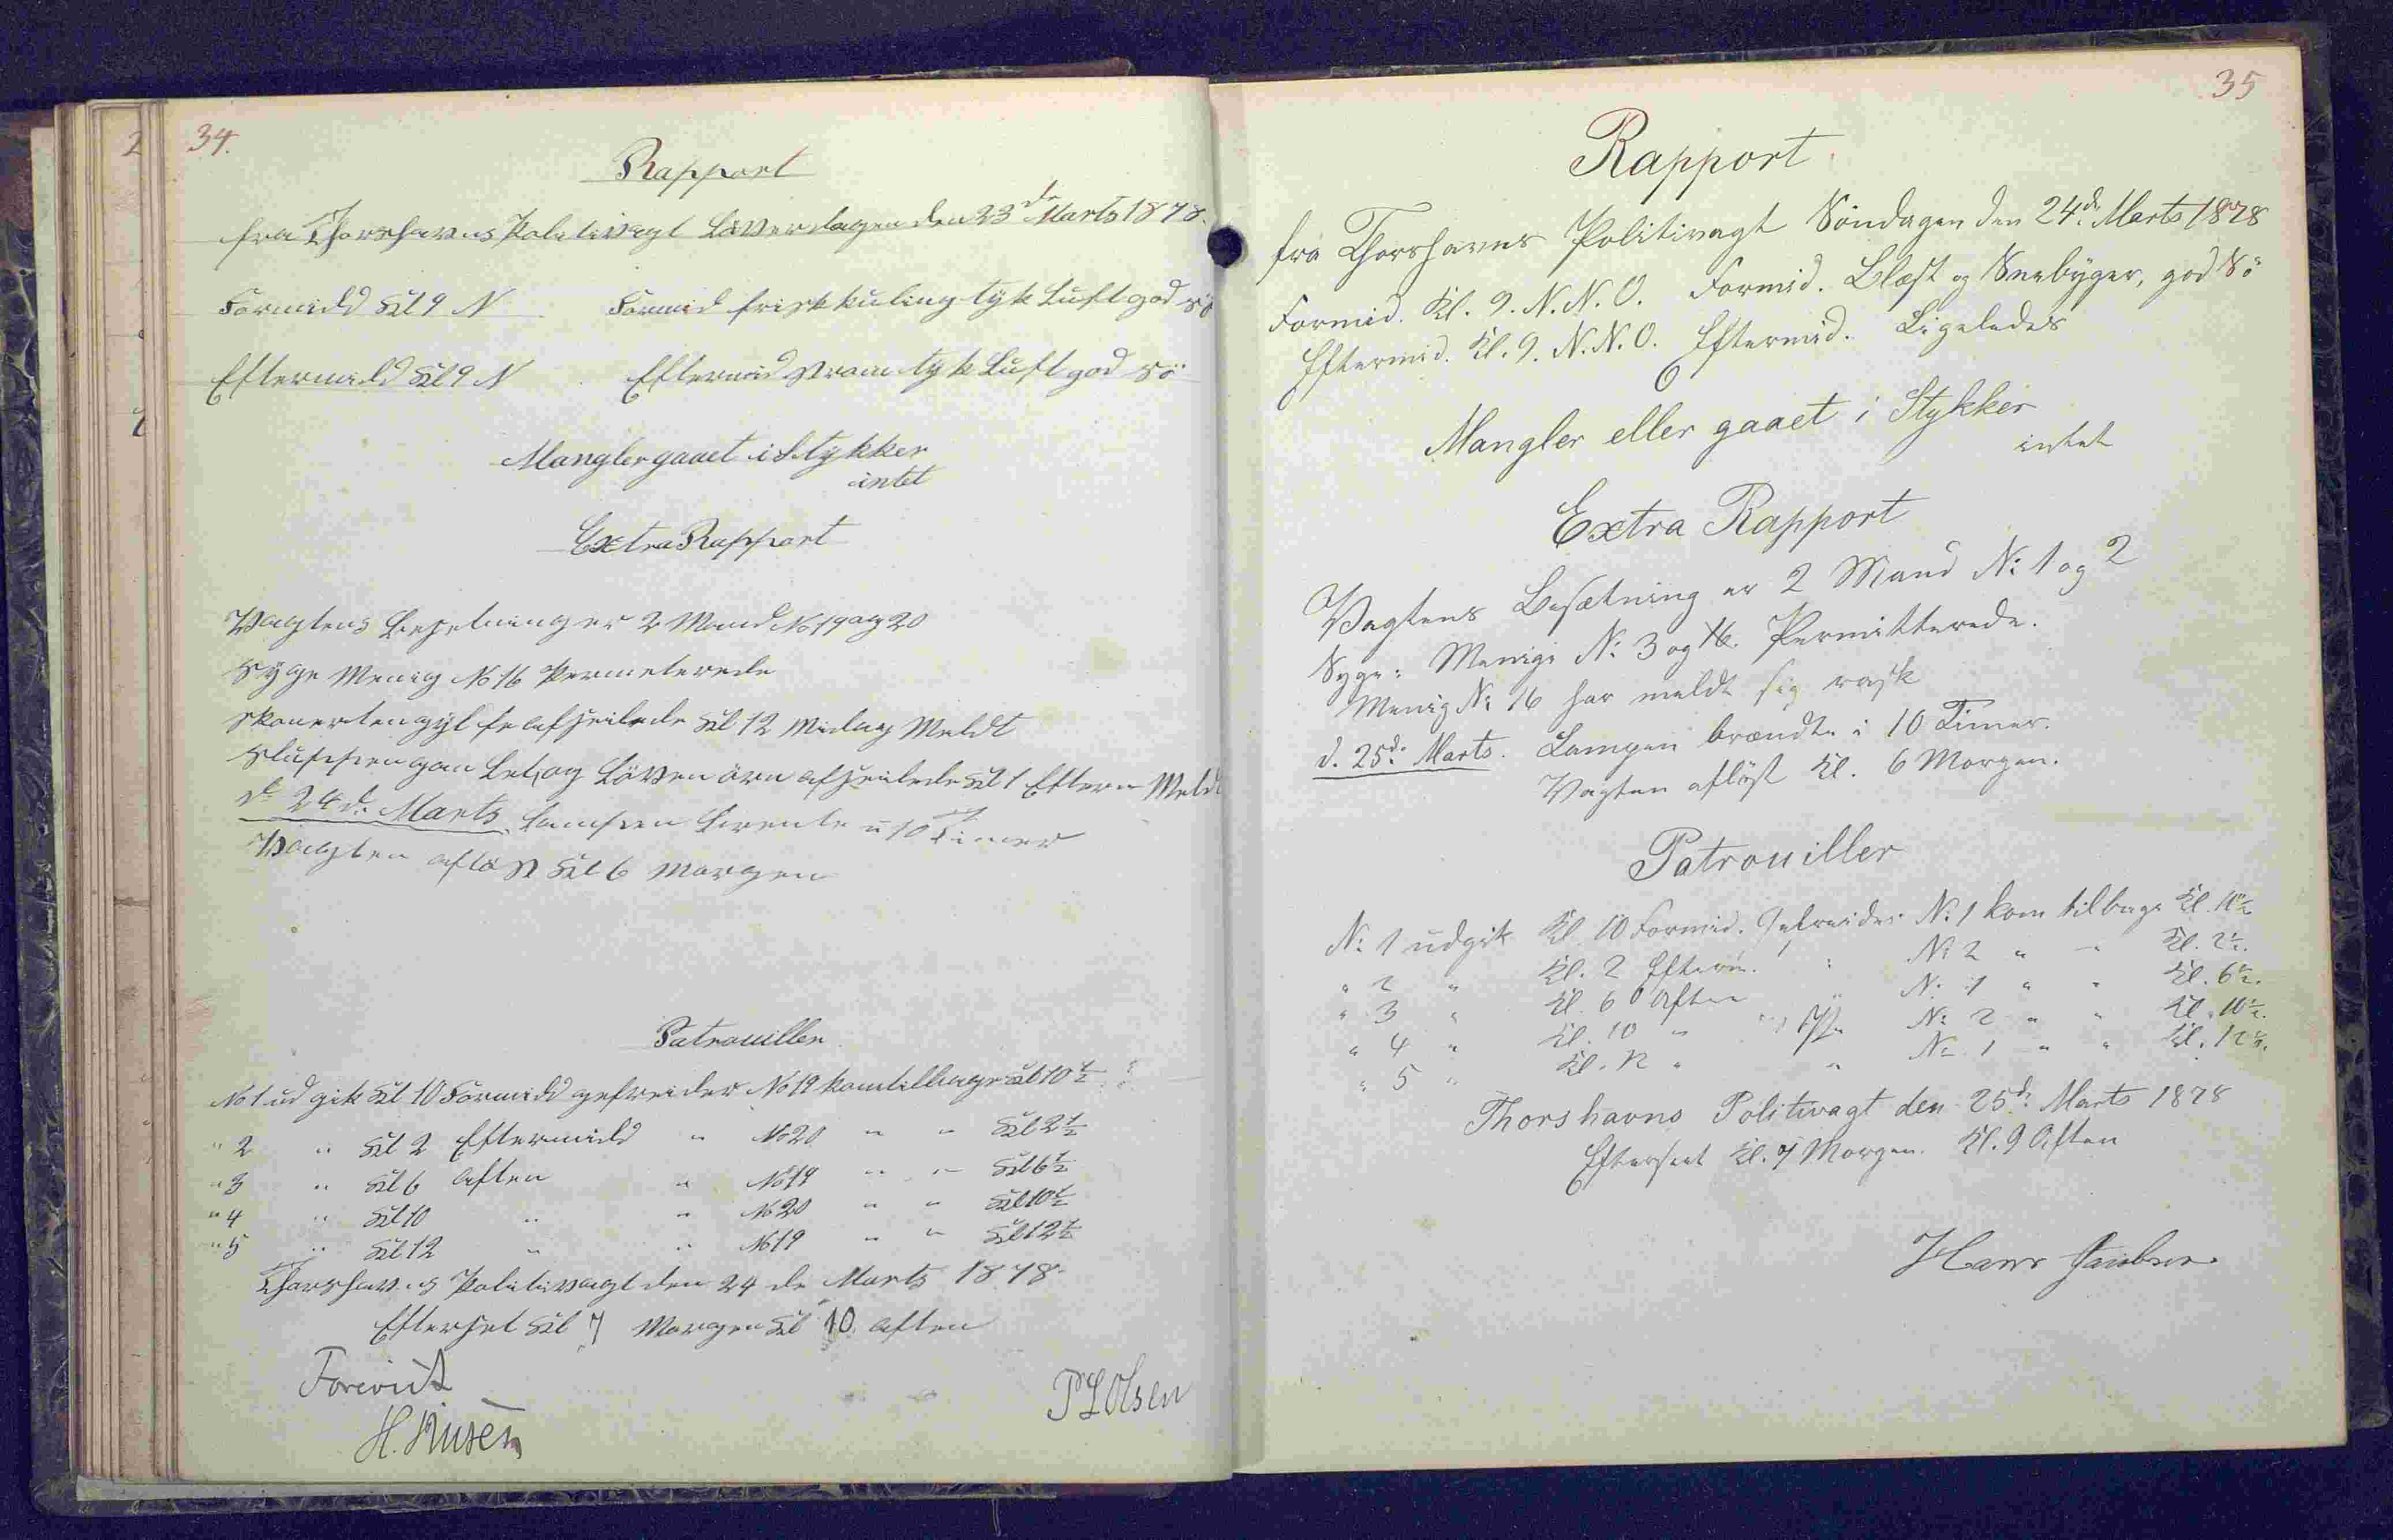 34.
Rapport
fra Thorshavns Politivagt Löverdagen den 23de Marts 1878.
Formidd Kl 9 N Formid frisk kuling tyk Luft god sö
Eftermidd Kl 9 N Eftermid Strom tyk Luft god sö
Mangler gaaet i Stykker
intet
Extra Rapport
Vagtens Besetning er 2 Mand No 19 og 20
Syge Menig No 16 Permeterede
Skonerten afseilede Kl 12 Midag Meldt
Sluppen og Löven örn afseilede Kl 1 Efterm Meldt
d. 24d. Marts Lampen brente i 10 Timer
Vagten aflöst Kl 6 Morgen
Patrouiller
No 1 ud gik Kl 10 Formidd gefreider No 19 kom tilbage Kl 10 1/2
" 2 " Kl 2 Eftermidd " No 20 " " Kl 2 1/2
" 3 " Kl 6 Aften " No 19 " " Kl 6 1/2
" 4 " Kl 10 " " No 20 " " Kl 10 1/2
" 5 " Kl 12 " " No 19 " " Kl 12 1/2
Thorshavns Politivagt den 24 de Marts 1878.
Efterset Kl 7 Morgen Kl 10 aften
Forevist
PLOlsen
H.
35
Rapport
fra Thorshavns Politivagt Söndagen den 24d. Marts 1878
Formid. Kl. 9. N.N.O. Formid. Blæst og Snebyger, god Sö
Eftermid. Kl. 9. N.N.O. Eftermid. Ligeledes
Mangler eller gaaet i Stykker
intet
Extra Rapport
Vagtens Besætning er 2 Mand No 1 og 2
Syge: Menige No 3 og 16. Permitterede.
Menig No 16 har meldt sig rask
d. 25d. Marts. Lampen brændte i 10 Timer.
Vagten aflöst Kl. 6 Morgen.
Patrouiller
No 1 udgik Kl. 10 Formid. Gefreider No 1 kom tilbage Kl. 10 1/2
" 2 " Kl. 2 Efterm. " No 2 " " Kl. 2 1/2.
" 3 " Kl. 6 Aften " No 1 " " Kl. 6 1/2.
" 4 " Kl. 10 " No 2 " " Kl. 10 1/2.
" 5 " Kl. 12 " " No 1 " " Kl. 12 1/2.
Thorshavns Politivagt den 25d. Marts 1878
Efterseet Kl. 7 Morgen. Kl. 9 Aften
Hans Jacobsen